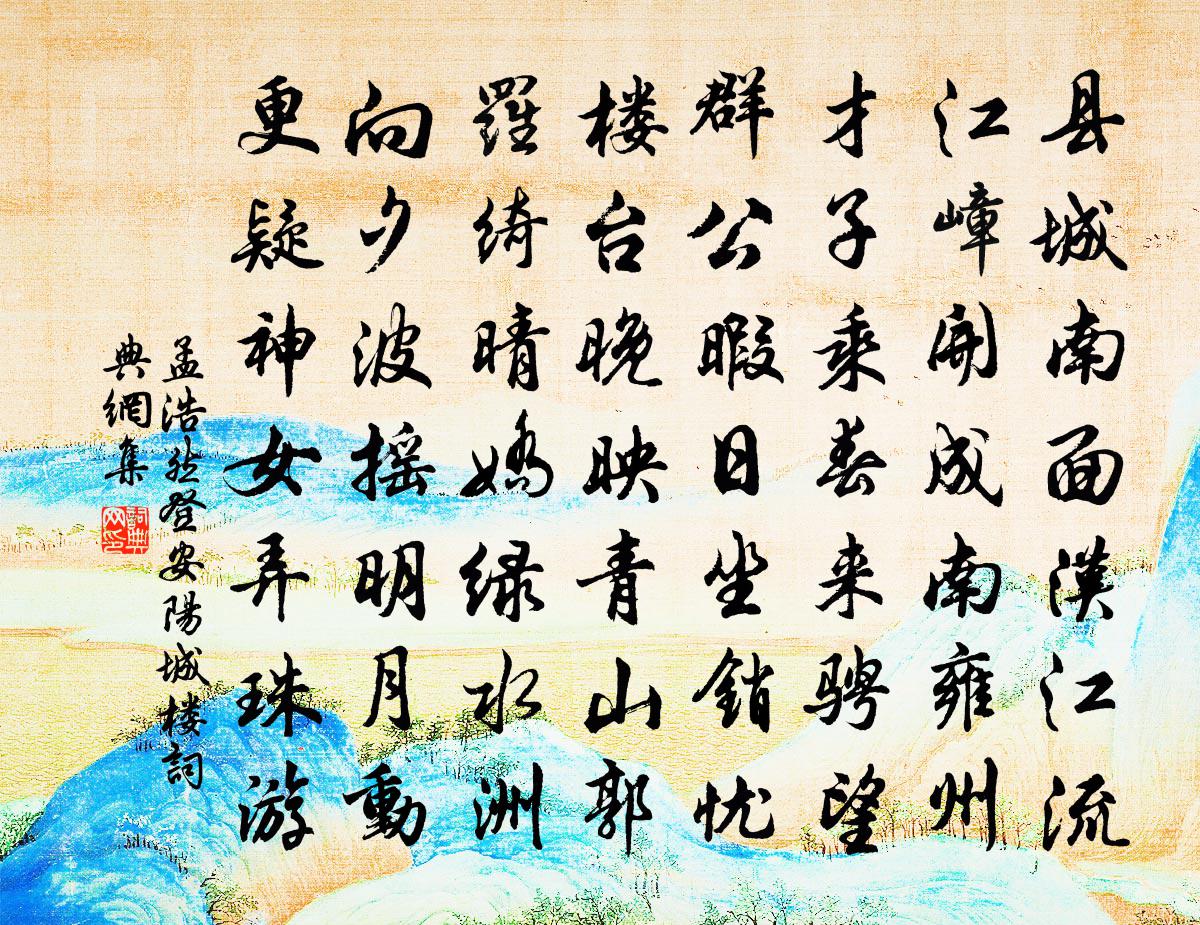 县城南面漢江流
江嶂開成南雍州
才子乘春来騁望
群公暇日坐銷忧
楼台晚映青山郭
羅绮晴嬌绿水洲
向夕波摇明月動
更疑神女弄珠游
孟浩然登安陽城楼詞
典網集
詞典
网印